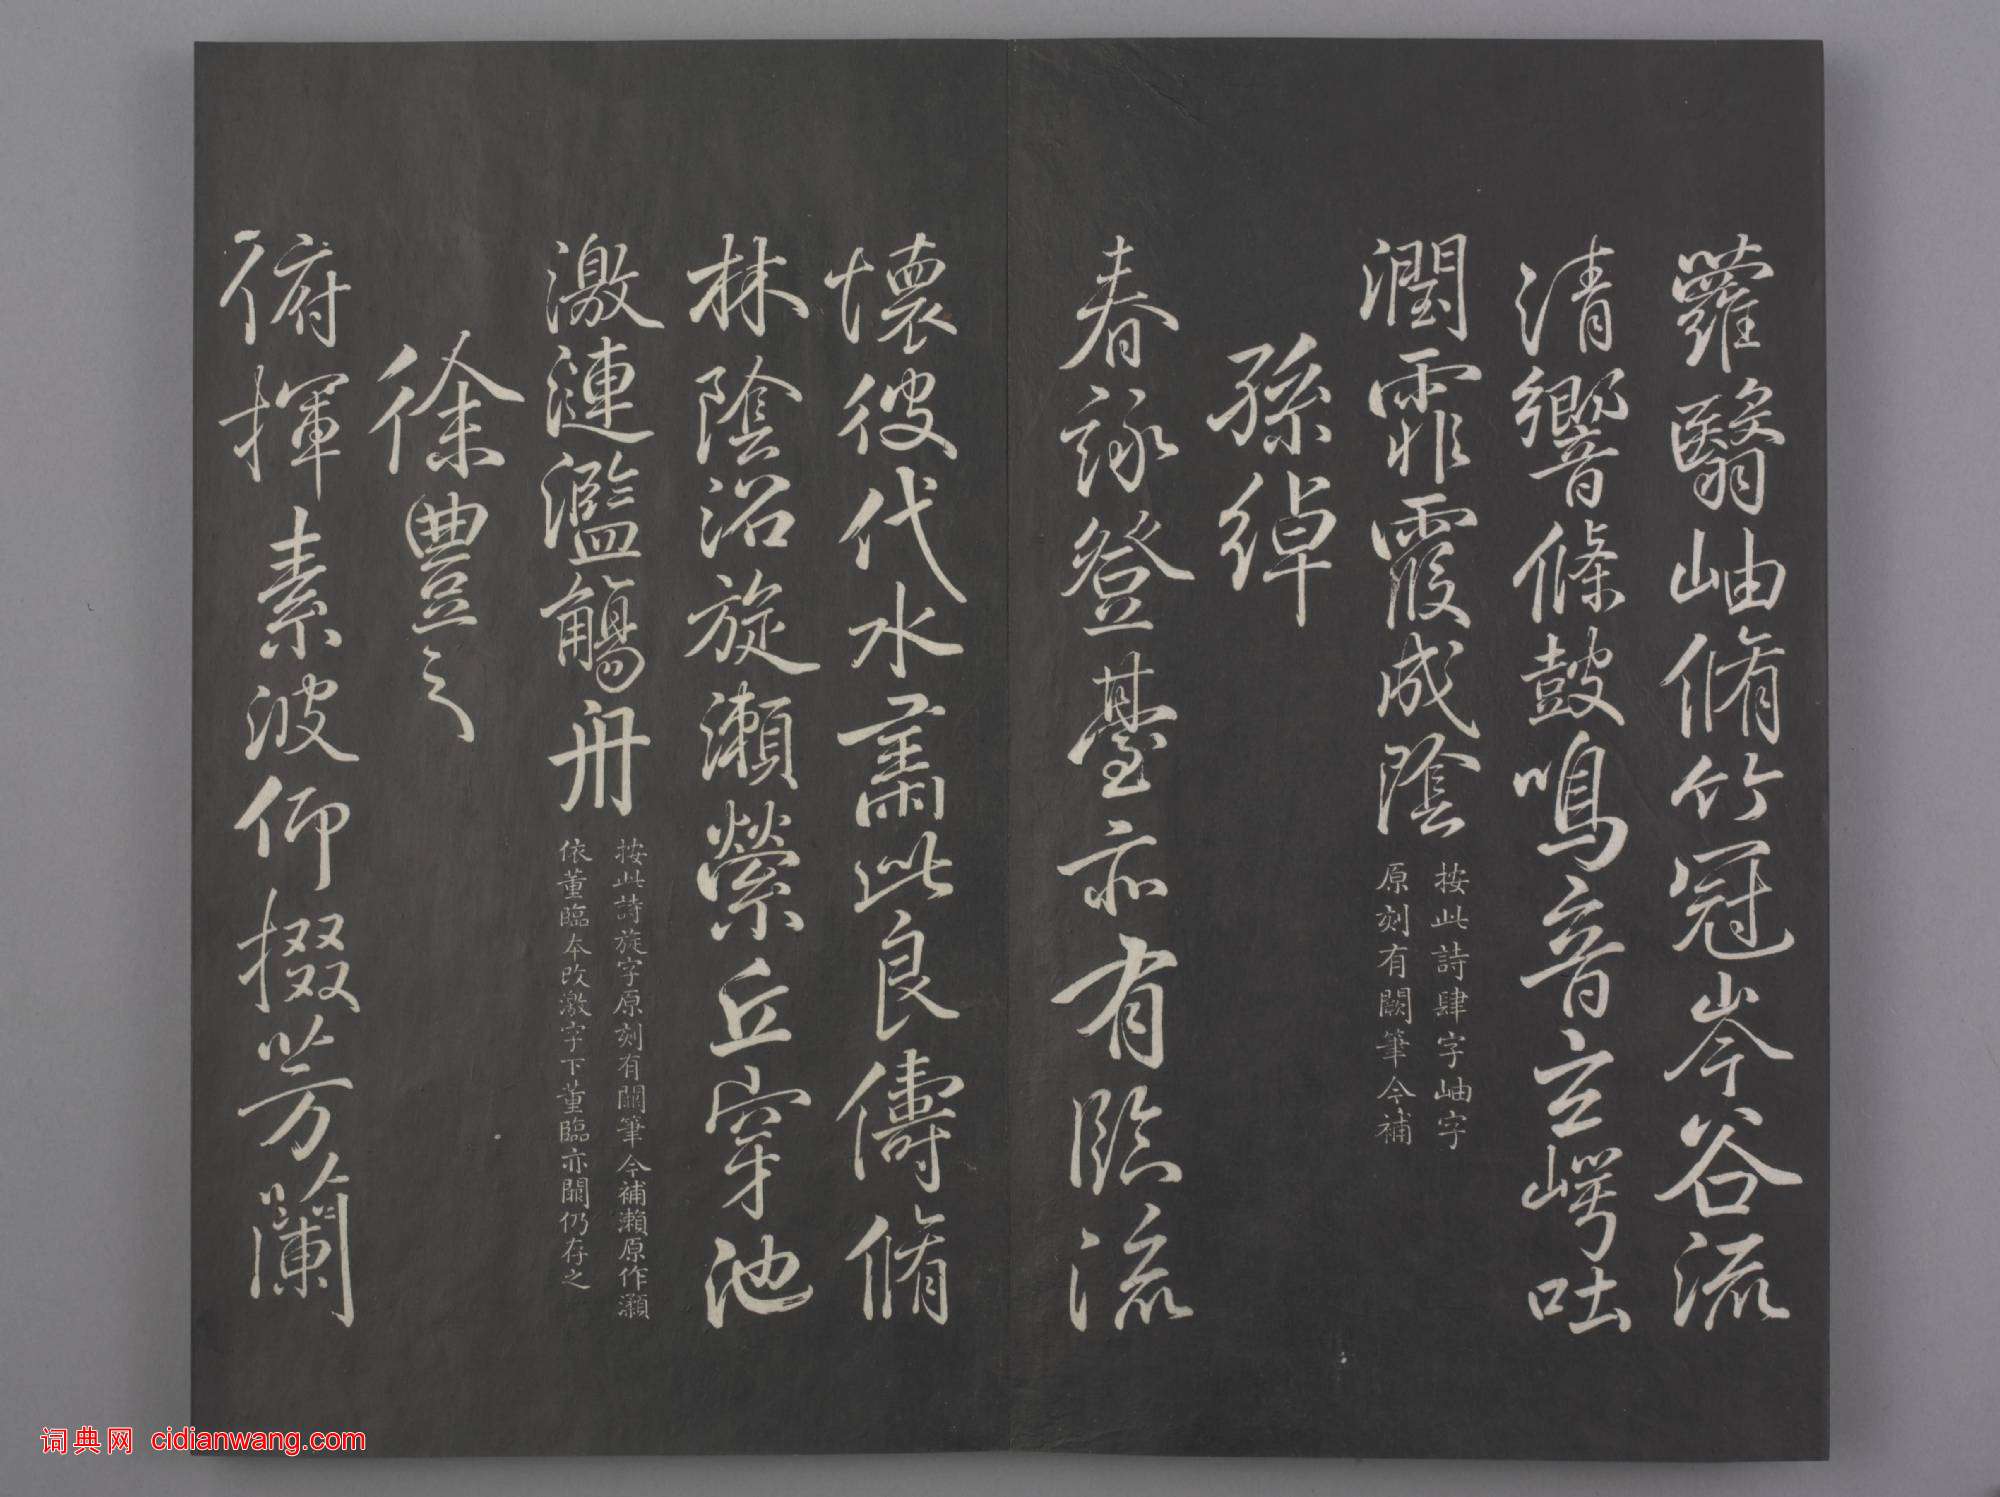 蘿翳岫脩竹冠岑谷流
清響條鼓鳴音玄崿吐
潤霏霧成陰
按此詩肆字岫字
原刻有闕筆今補
孫綽
春詠登臺亦有臨流
懷彼伐木肅此良儔脩
林陰沼旋瀨縈丘穿池
激連濫觴舟
按此詩旋字原刻有闕筆今補瀨原作灝
依董臨本改激字下董臨亦闕仍存之
徐豐之
俯揮素波仰掇芳蘭
词典网 cidianwang.com